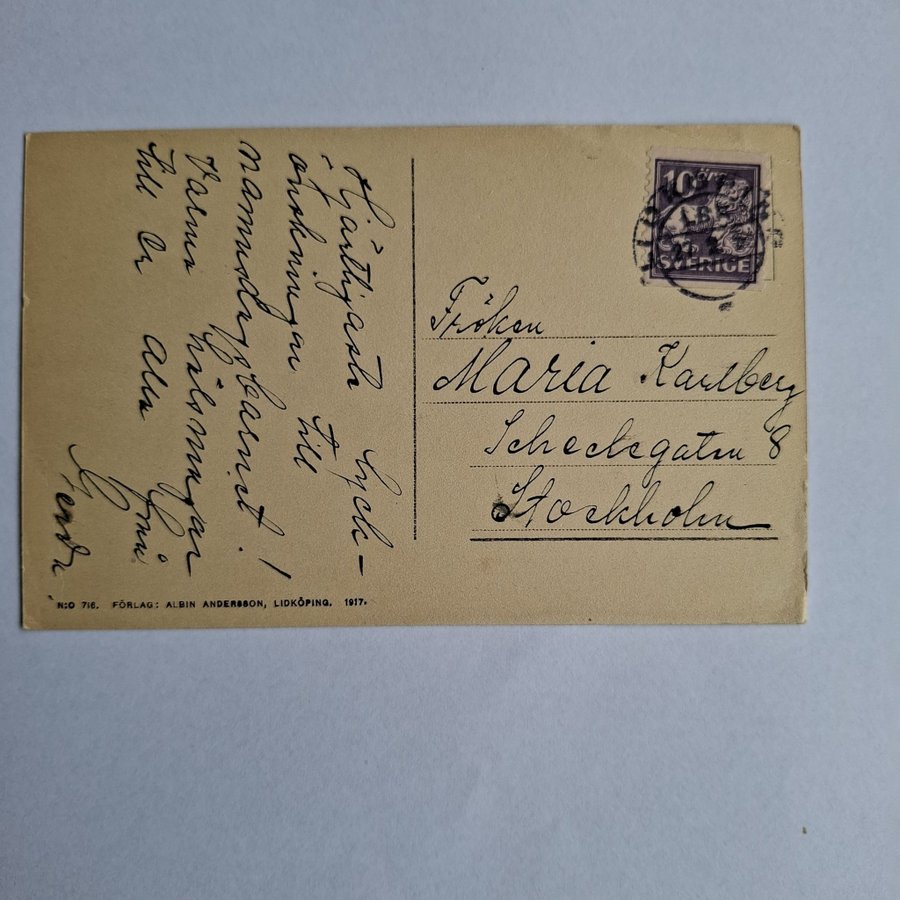 Hjärtligaste lyck-
önskningar till
namnsdagsbarnet!
Varma hälsningar
till Er alla
Gerda
10 ÖRE
SVERIGE
LIDKÖPING
Fröken
Maria Karlberg
Scheelegatan 8
Stockholm
N:O 716. FÖRLAG: ALBIN ANDERSSON, LIDKÖPING. 1917.